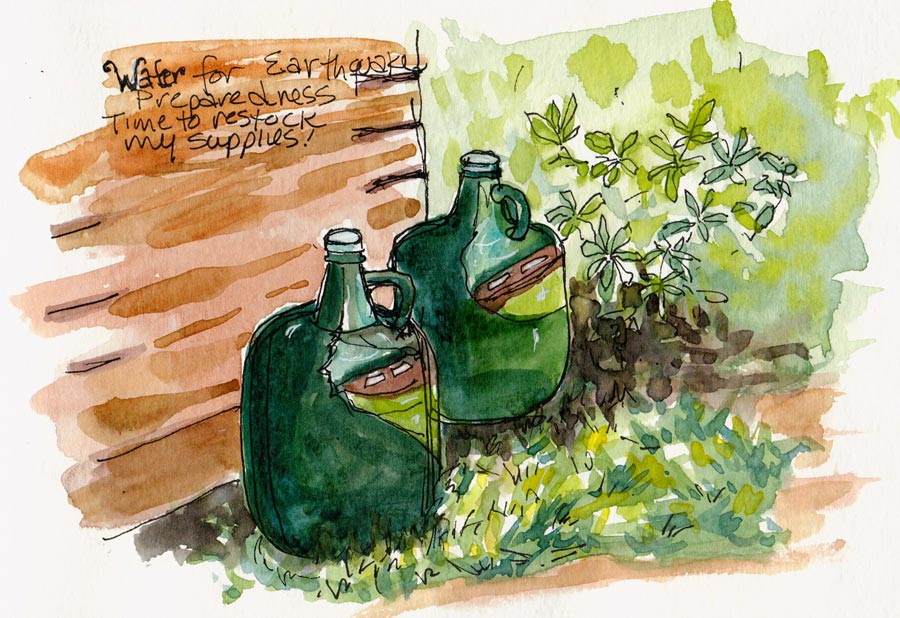 Water for Earthquake
Preparedness
Time to restock
my supplies!